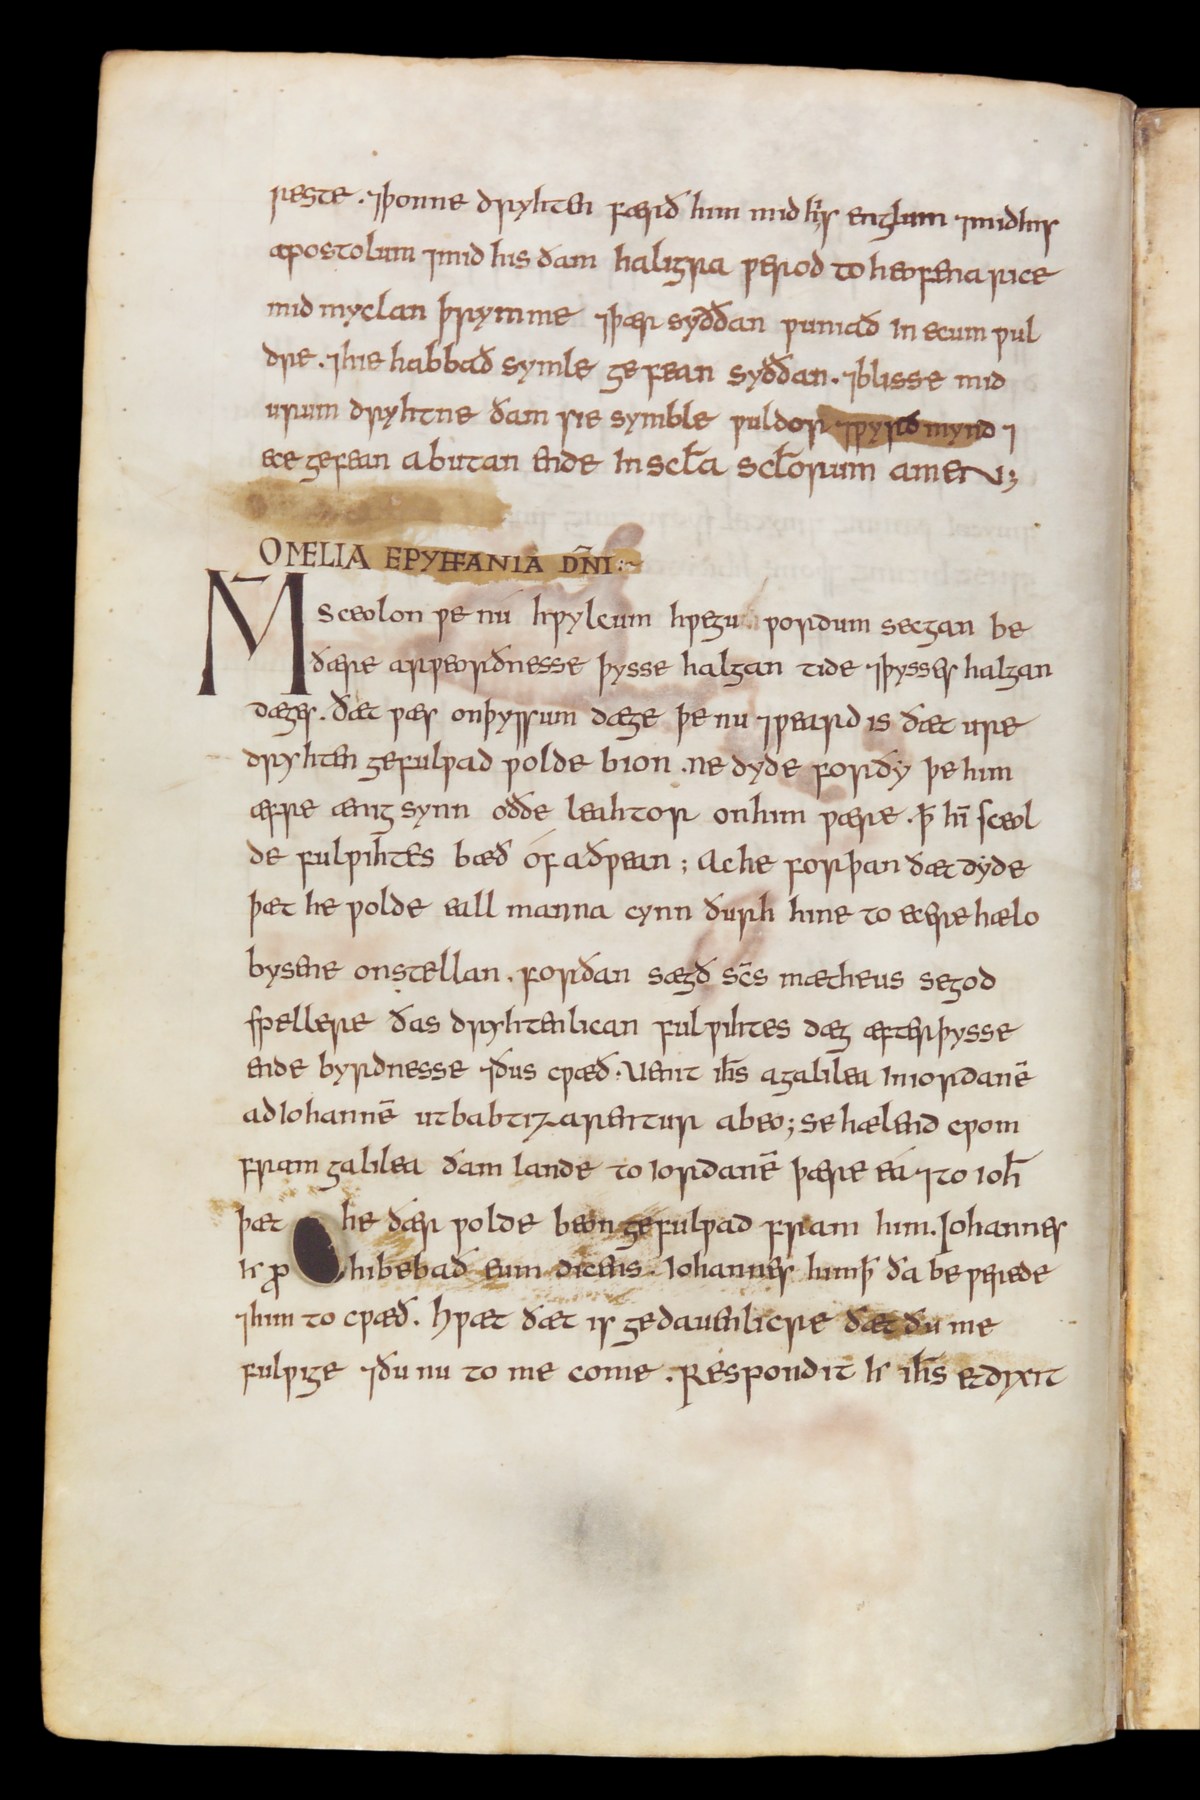 reste . ⁊ þonne dryhten færið him mid his englum ⁊ mid his
apostolum ⁊ mid his ðam haligra ƿerod to heofena rice
mid myclan þrymme ⁊ þær syððan ƿuniað in ecum ƿul
dre . ⁊ hie habbað symle gefean syððan . ⁊ blisse mid
urum dryhtne ðam sie symble ƿuldor ⁊ ƿyrðmynd ⁊
ece gefean a butan ende in secl̄a secl̄orum amen ;
OMELIA EPYFFANIA DN̄I :~
M̄ sceolon ƿe nu hƿylcum hƿegu ƿordum secgan be
ðære arƿeorðnesse þysse halgan tide ⁊ þysses halgan
dæges . ðæt ƿæs on þyssum dæge þe nu ⁊ƿeard is ðæt ure
dryhten gefulƿad ƿolde bion . ne dyde forðy þe him
æfre ænig synn oððe leahtor on him ƿære . þ̄ hī sceol
de fulƿihtes bæð of aðƿean ; Ac he forþan ðæt dyde
þæt he ƿolde eall manna cynn ðurh hine to ecere hælo
bysene onstellan . forðan sægð sc̄s mætheus se god
spellere ðas dryhtenlican fulƿihtes dæg æfter þysse
ende byrdnesse ⁊ ðus cƿæð . Uenit ih̄s a galilea in iordanē
ad Iohannē ut babtizarentur ab eo ; se hælend cƿom
fram galilea ðam lande to iordanē þære eá ⁊ to ioh̄
þæt he ðær ƿolde beon gefulƿad fram him . Iohannes
h̵ ꝓ hibebað eum dicens . Iohannes him þ̄ ða beƿerede
⁊ him to cƿæð . Hƿæt ðæt is gedauenlicre ðæt ðu me
fulƿige ⁊ ðu nu to me come . Respondit h̵ ih̄s et dixit